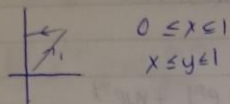 0 ≤ x ≤ 1
x ≤ y ≤ 1